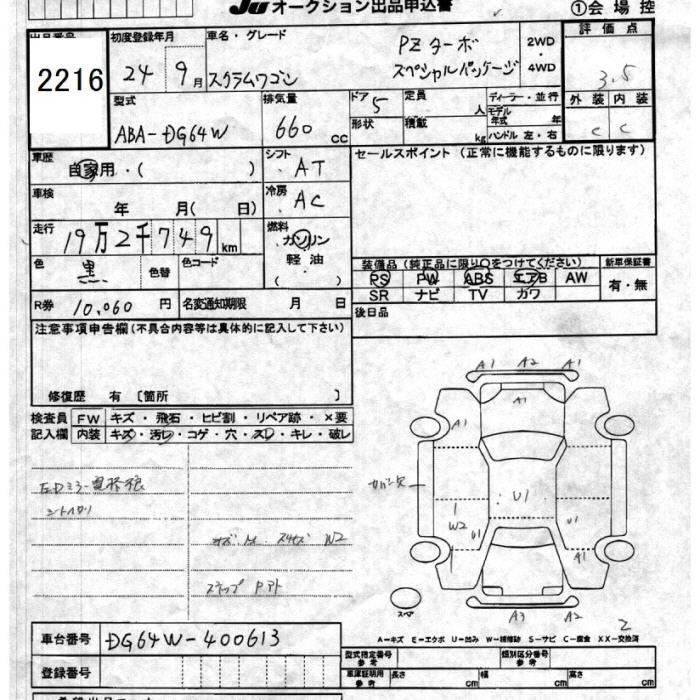 JU オークション出品申込書
①会場控
出品番号 初度登録年月 車名・グレード 評価点
2216
24年 9月 スクラムワゴン PZターボ スペシャルパッケージ 2WD・4WD 3.5
型式 排気量 ドア 5 定員 人 ディーラー・並行 外装 内装
ABA-DG64W 660cc 形状 積載 kg モデル年式 年 ハンドル 左・右 C C
車歴 自家用・( ) シフト AT セールスポイント (正常に機能するものに限ります)
車検 年 月( 日) 冷房 AC
走行 19万2千749km 燃料 ガソリン 軽油 ( )
色 黒 色替 色コード
装備品 (純正品に限り○をつけてください) 新車保証書
PS PW ABS エアB AW 有・無
SR ナビ TV カワ
R券 10,060円 名変通知期限 月 日 後日品
注意事項申告欄(不具合内容等は具体的に記入して下さい)
修復歴 有 〔箇所 〕
検査員記入欄 FW キズ・飛石・ヒビ割・リペア跡・×要
内装 キズ・汚レ・コゲ・穴・スレ・キレ・破レ
A1 A2 A1
A1
A1
U1
W2
U1
U1
A1
スペア
A3 A2
2
W2
A-キズ E-エクボ U-凹み W-補修跡 S-サビ C-腐食 XX-交換済
車台番号 DG64W-400613
型式指定番号 参考 類別区分番号 参考
登録番号
車庫証明用 参考 長さ cm 幅 cm 高さ cm